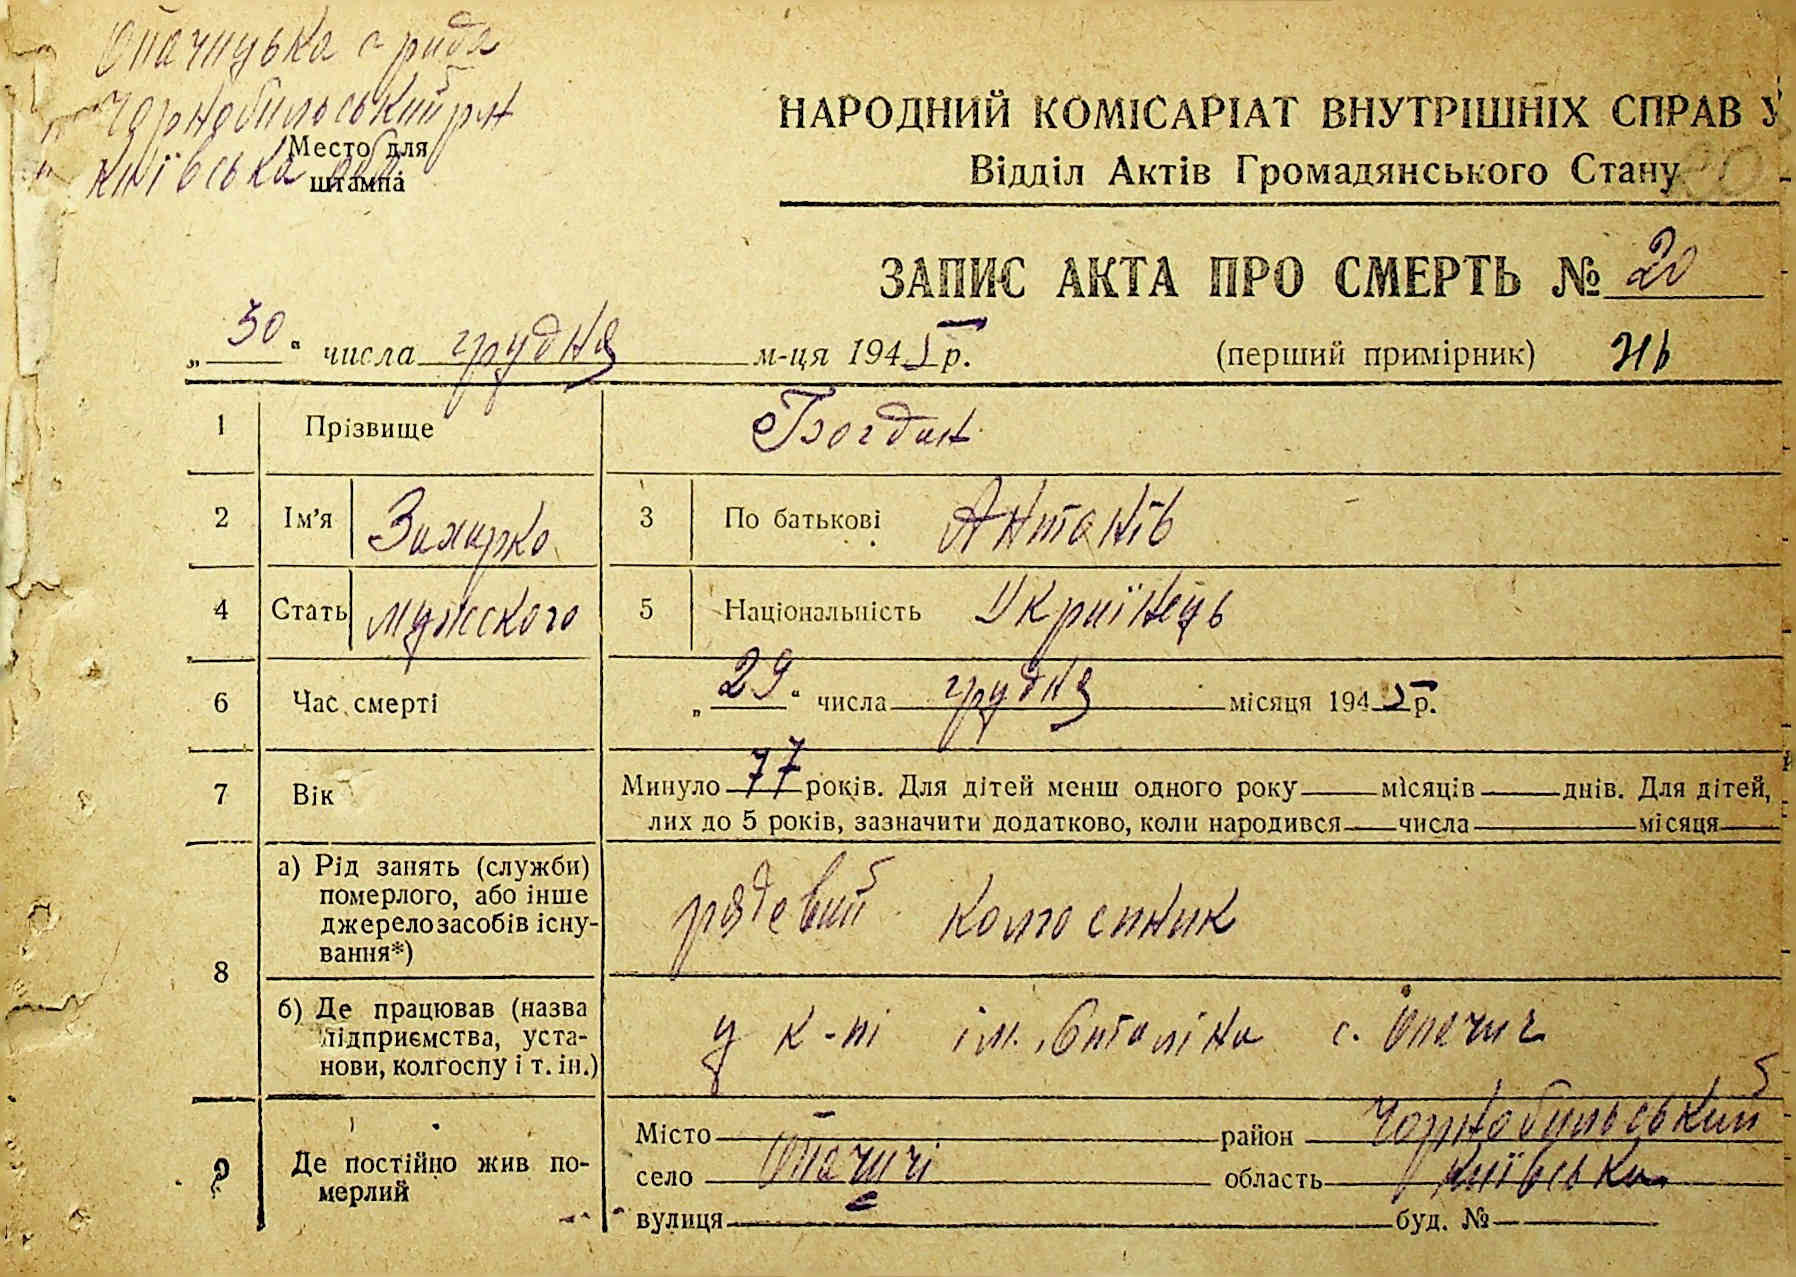 Опачицька с рада
Чорнобильський рн
Київська обл.
Место для
штампа
НАРОДНИЙ КОМІСАРІАТ ВНУТРІШНІХ СПРАВ У
Відділ Актів Громадянського Стану
ЗАПИС АКТА ПРО СМЕРТЬ № 20
„30“ числа грудня м-ця 1945 р. (перший примірник)
1 Прізвище Богдан
2 Ім’я Захарко 3 По батькові Антонів
4 Стать мужского 5 Національність Українець
6 Час смерті „29“ числа грудня місяця 1945 р.
7 Вік Минуло 77 років. Для дітей менш одного року — місяців — днів. Для дітей,
лих до 5 років, зазначити додатково, коли народився — числа — місяця —
8 а) Рід занять (служби) померлого, або інше джерело засобів існування*) рядовий колгоспник
б) Де працював (назва підприємства, установи, колгоспу і т. ін.) у к-пі ім. Сталіна с. Опачич
9 Де постійно жив померлий Місто — район Чорнобильський
село Опачичі область Київська
вулиця — буд. № —